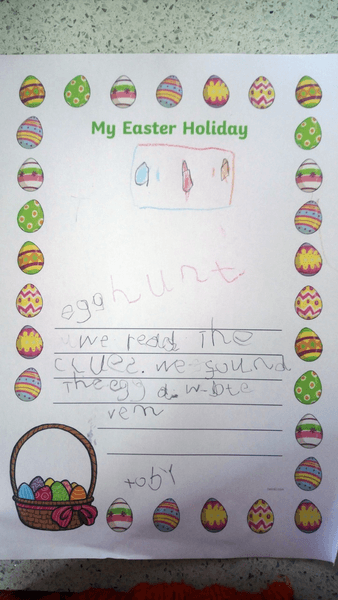 My Easter Holiday
egg hunt
we read The
clues. we found
The egg
toby